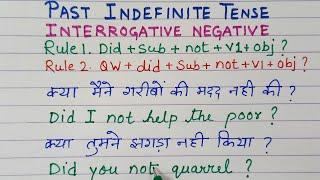 PAST INDEFINITE TENSE
INTERROGATIVE NEGATIVE
Rule 1. Did + sub + not + V1 + obj ?
Rule 2. QW + did + sub + not + V1 + obj ?
क्या मैंने गरीबों की मदद नही की ?
Did I not help the poor ?
क्या तुमने झगड़ा नही किया ?
Did you not quarrel ?